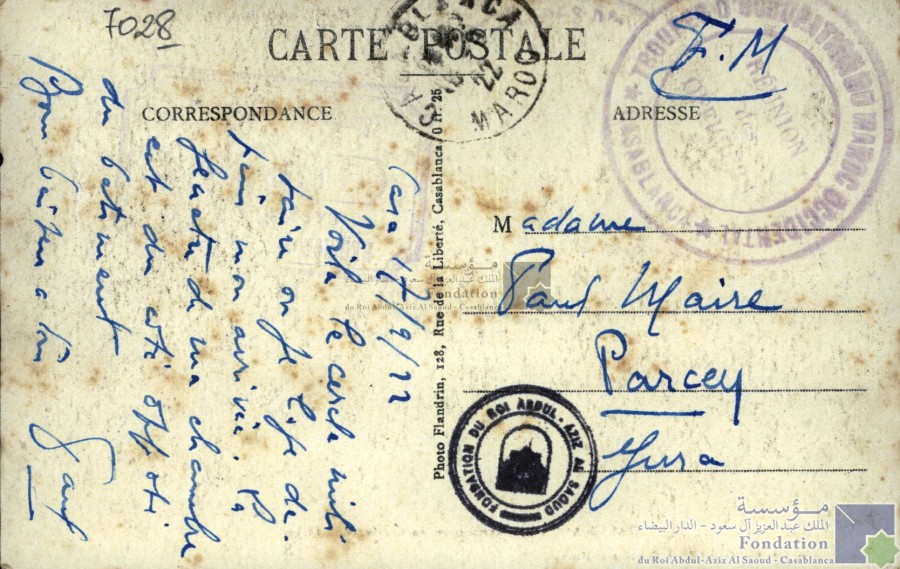 7028
CARTE POSTALE
CORRESPONDANCE
ADRESSE
F.M
CASABLANCA
22
MAROC
TROUPES D'OCCUPATION DU MAROC OCCIDENTAL
CASABLANCA
Casa 17/9/22
Voila le cercle mili
taire où je loge de
puis mon arrivée. La
fenetre de ma chambre
est du coté opposé
du batiment
Bons baisers a tous
Paul
Photo Flandrin, 128, Rue de la Liberté, Casablanca
Madame
Paul Maire
Parcey
Jura
FONDATION DU ROI ABDUL-AZIZ AL SAOUD
مؤسسة
الملك عبد العزيز آل سعود - الدار البيضاء
Fondation
du Roi Abdul-Aziz Al Saoud - Casablanca
مؤسسة
الملك عبد العزيز آل سعود - الدار البيضاء
Fondation
du Roi Abdul-Aziz Al Saoud - Casablanca